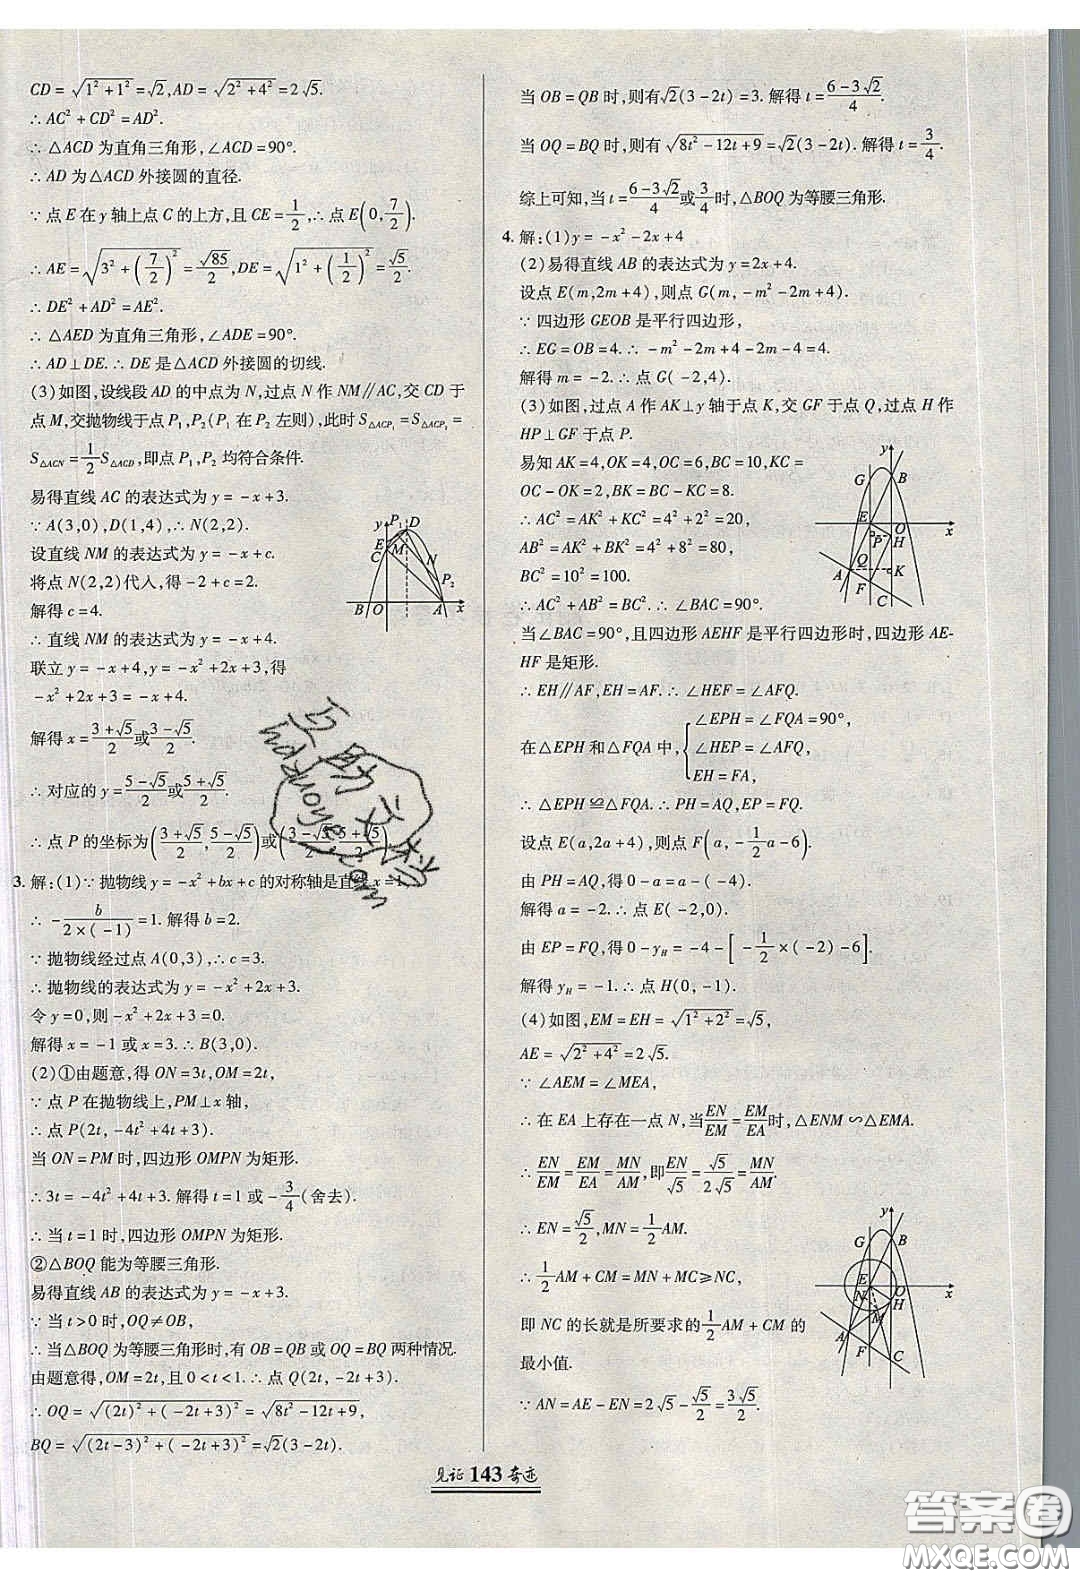 CD=√(1²+1²)=√2,AD=√(2²+4²)=2√5.
∴AC²+CD²=AD².
∴△ACD为直角三角形,∠ACD=90°.
∴AD为△ACD外接圆的直径.
∵点E在y轴上点C的上方,且CE=1/2,∴点E(0,7/2).
∴AE=√(3²+(7/2)²)=√85/2,DE=√(1²+(1/2)²)=√5/2.
∴DE²+AD²=AE².
∴△AED为直角三角形,∠ADE=90°.
∴AD⊥DE.∴DE是△ACD外接圆的切线.
(3)如图,设线段AD的中点为N,过点N作NM∥AC,交CD于
点M,交抛物线于点P₁,P₂(P₁在P₂左则),此时S△ACP₁=S△ACP₁=
S△ACN=1/2S△ACD,即点P₁,P₂均符合条件.
易得直线AC的表达式为y=-x+3.
∵A(3,0),D(1,4),∴N(2,2).
设直线NM的表达式为y=-x+c.
将点N(2,2)代入,得-2+c=2.
解得c=4.
∴直线NM的表达式为y=-x+4.
联立y=-x+4,y=-x²+2x+3,得
-x²+2x+3=-x+4.
解得x=(3+√5)/2或(3-√5)/2.
∴对应的y=(5-√5)/2或(5+√5)/2.
∴点P的坐标为((3+√5)/2,(5-√5)/2)或((3-√5)/2,(5+√5)/2)
y P₁ D E C M N P₂ B O A x
3.解:(1)∵抛物线y=-x²+bx+c的对称轴是直线x=1
∴-b/(2×(-1))=1.解得b=2.
∵抛物线经过点A(0,3),∴c=3.
∴抛物线的表达式为y=-x²+2x+3.
令y=0,则-x²+2x+3=0.
解得x=-1或x=3.∴B(3,0).
(2)①由题意,得ON=3t,OM=2t,
∵点P在抛物线上,PM⊥x轴,
∴点P(2t,-4t²+4t+3).
当ON=PM时,四边形OMPN为矩形.
∴3t=-4t²+4t+3.解得t=1或-3/4(舍去).
∴当t=1时,四边形OMPN为矩形.
②△BOQ能为等腰三角形.
易得直线AB的表达式为y=-x+3.
∵当t>0时,OQ≠OB,
∴当△BOQ为等腰三角形时,有OB=QB或OQ=BQ两种情况.
由题意得,OM=2t,且0<t<1.∴点Q(2t,-2t+3).
∴OQ=√((2t)²+(-2t+3)²)=√(8t²-12t+9),
BQ=√((2t-3)²+(-2t+3)²)=√2(3-2t).
当OB=QB时,则有√2(3-2t)=3.解得t=(6-3√2)/4.
当OQ=BQ时,则有√(8t²-12t+9)=√2(3-2t).解得t=3/4.
综上可知,当t=(6-3√2)/4或3/4时,△BOQ为等腰三角形.
4.解:(1)y=-x²-2x+4
(2)易得直线AB的表达式为y=2x+4.
设点E(m,2m+4),则点G(m,-m²-2m+4).
∵四边形GEOB是平行四边形,
∴EG=OB=4.∴-m²-2m+4-2m-4=4.
解得m=-2.∴点G(-2,4).
(3)如图,过点A作AK⊥y轴于点K,交GF于点Q,过点H作
HP⊥GF于点P.
易知AK=4,OK=4,OC=6,BC=10,KC=
OC-OK=2,BK=BC-KC=8.
∴AC²=AK²+KC²=4²+2²=20,
AB²=AK²+BK²=4²+8²=80,
BC²=10²=100.
∴AC²+AB²=BC².∴∠BAC=90°.
当∠BAC=90°,且四边形AEHF是平行四边形时,四边形AE-
HF是矩形.
y G B E O x P H Q A K F C
∴EH∥AF,EH=AF.∴∠HEF=∠AFQ.
在△EPH和△FQA中,{∠EPH=∠FQA=90°,
∠HEP=∠AFQ,
EH=FA,
∴△EPH≌△FQA.∴PH=AQ,EP=FQ.
设点E(a,2a+4),则点F(a,-1/2a-6).
由PH=AQ,得0-a=a-(-4).
解得a=-2.∴点E(-2,0).
由EP=FQ,得0-y_H=-4-[-1/2×(-2)-6].
解得y_H=-1.∴点H(0,-1).
(4)如图,EM=EH=√(1²+2²)=√5,
AE=√(2²+4²)=2√5.
∵∠AEM=∠MEA,
∴在EA上存在一点N,当EN/EM=EM/EA时,△ENM∽△EMA.
∴EN/EM=EM/EA=MN/AM,即EN/√5=√5/2√5=MN/AM.
∴EN=√5/2,MN=1/2AM.
∴1/2AM+CM=MN+MC≥NC,
即NC的长就是所要求的1/2AM+CM的
最小值.
∵AN=AE-EN=2√5-√5/2=3√5/2.
y G B E O x N H M A F C
见证143奇迹
答案卷
MXQE.COM